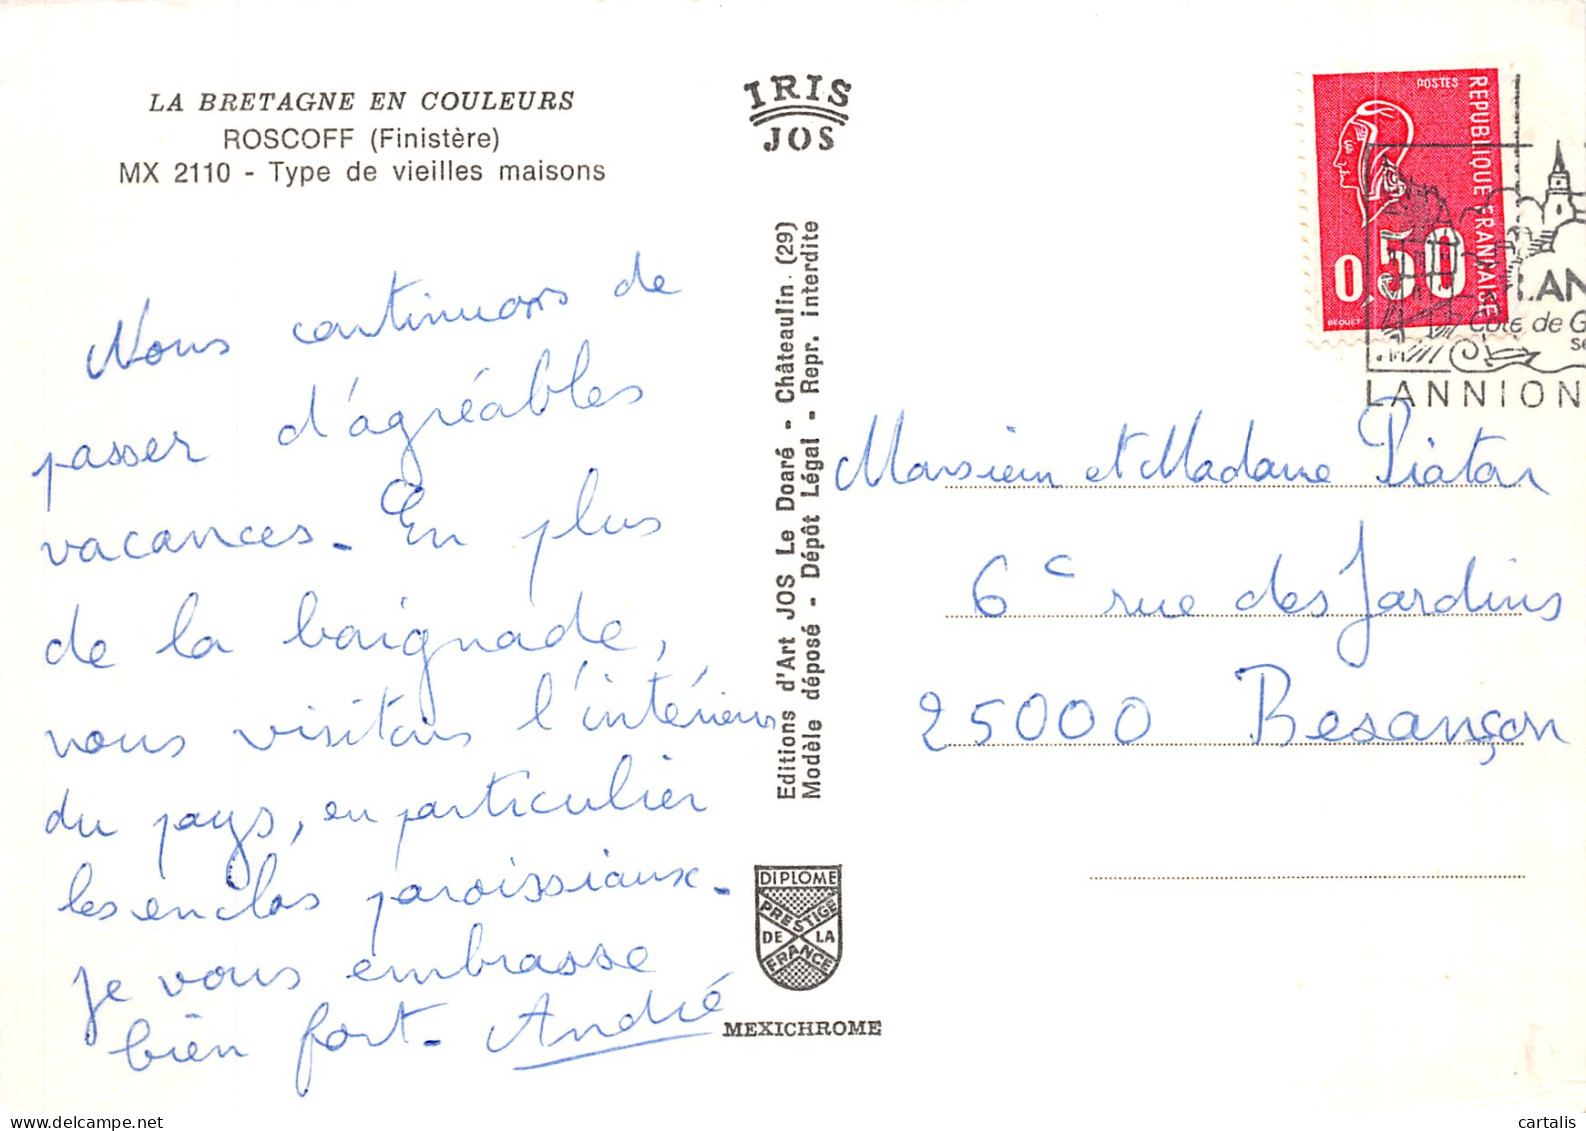 LA BRETAGNE EN COULEURS
ROSCOFF (Finistère)
MX 2110 - Type de vieilles maisons
Nous continuons de
passer d'agréables
vacances. En plus
de la baignade,
nous visitons l'intérieur
du pays, en particulier
les enclos paroissiaux.
Je vous embrasse
bien fort. André
IRIS
JOS
Editions d'Art JOS Le Doaré - Châteaulin. (29)
Modèle déposé - Dépôt Légal - Repr. interdite
DIPLOME
PRESTIGE
DE LA
FRANCE
MEXICHROME
POSTES
REPUBLIQUE FRANÇAISE
0,50
BEQUET
LAN
Côte de G
se
LANNION
Monsieur et Madame Piaton
6 c rue des Jardins
25000 Besançon
cartalis